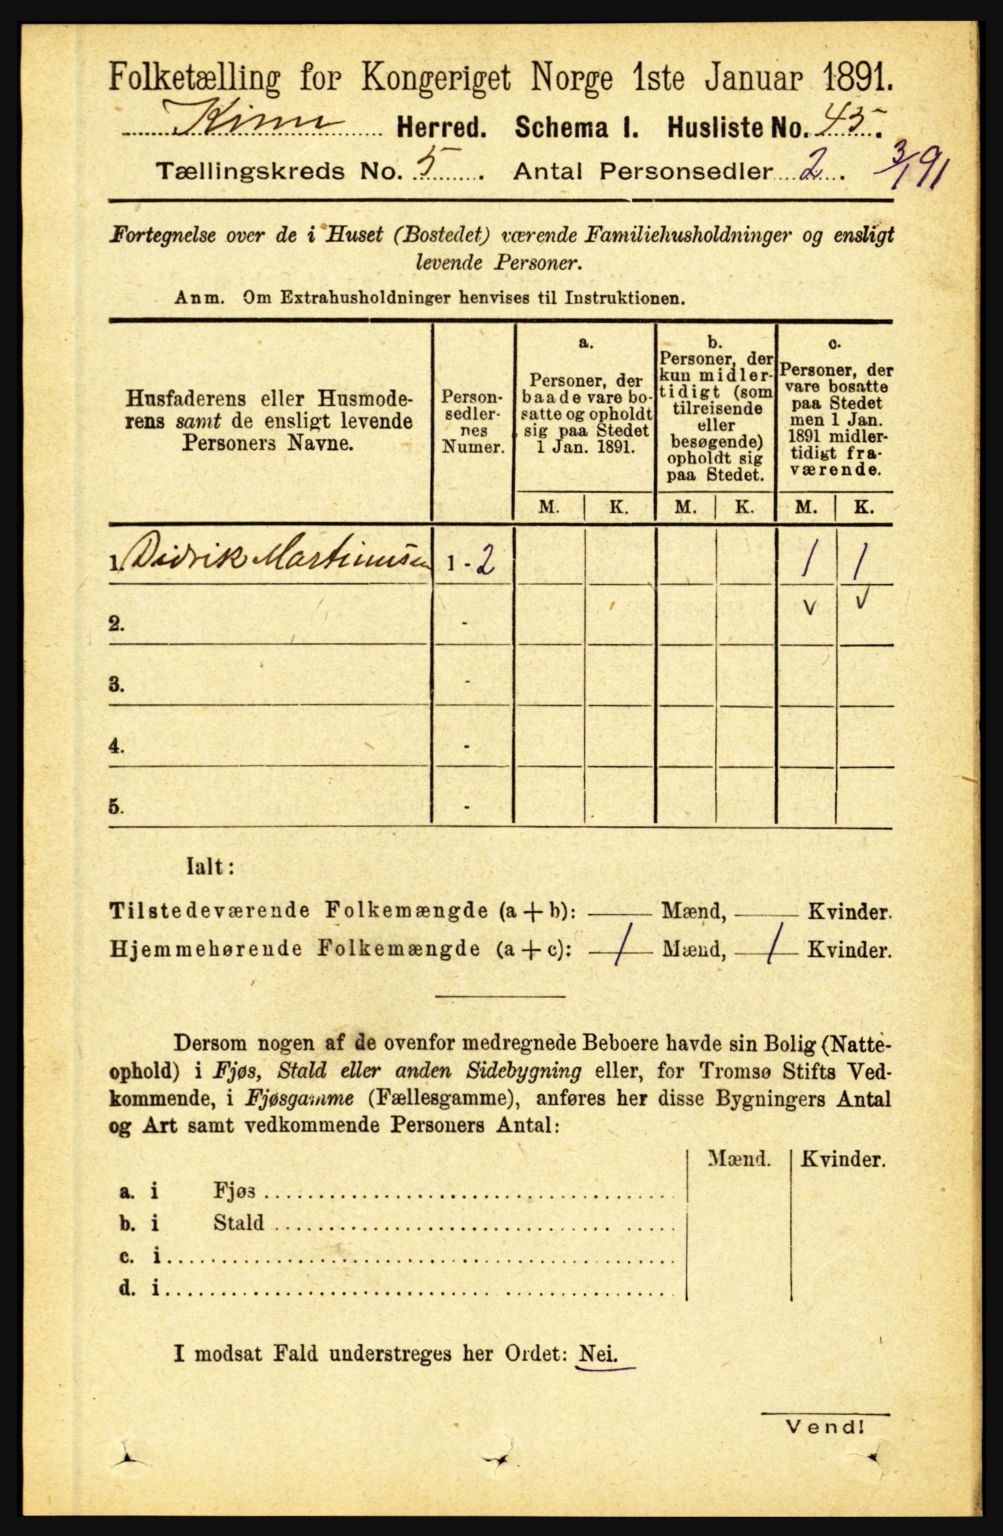 Folketælling for Kongeriget Norge 1ste Januar 1891.
Kinn Herred. Schema I. Husliste No. 45.
Tællingskreds No. 5. Antal Personsedler 2. 3/1 91
Fortegnelse over de i Huset (Bostedet) værende Familiehusholdninger og ensligt
levende Personer.
Anm. Om Extrahusholdninger henvises til Instruktionen.
Husfaderens eller Husmode-
rens samt de ensligt levende
Personers Navne.
Person-
sedler-
nes
Numer.
a.
Personer, der
baade vare bo-
satte og opholdt
sig paa Stedet
1 Jan. 1891.
b.
Personer, der
kun midler-
tidigt (som
tilreisende
eller
besøgende)
opholdt sig
paa Stedet.
c.
Personer, der
vare bosatte
paa Stedet
men 1 Jan.
1891 midler-
tidigt fra-
værende.
M. K. M. K. M. K.
1. Didrik Martinusen 1 - 2 1 1
2. - v v
3. -
4. -
5. -
Ialt:
Tilstedeværende Folkemængde (a + b): — Mænd, — Kvinder.
Hjemmehørende Folkemængde (a + c): 1 Mænd, 1 Kvinder.
Dersom nogen af de ovenfor medregnede Beboere havde sin Bolig (Natte-
ophold) i Fjøs, Stald eller anden Sidebygning eller, for Tromsø Stifts Ved-
kommende, i Fjøsgamme (Fællesgamme), anføres her disse Bygningers Antal
og Art samt vedkommende Personers Antal:
Mænd. Kvinder.
a. i Fjøs
b. i Stald
c. i
d. i
I modsat Fald understreges her Ordet: Nei.
Vend!